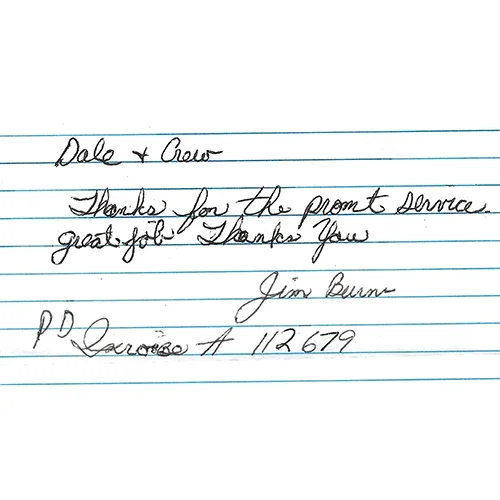 Dale + Crew
Thanks for the promt service.
great job Thanks You
Jim Burns
PD Invoice # 112679